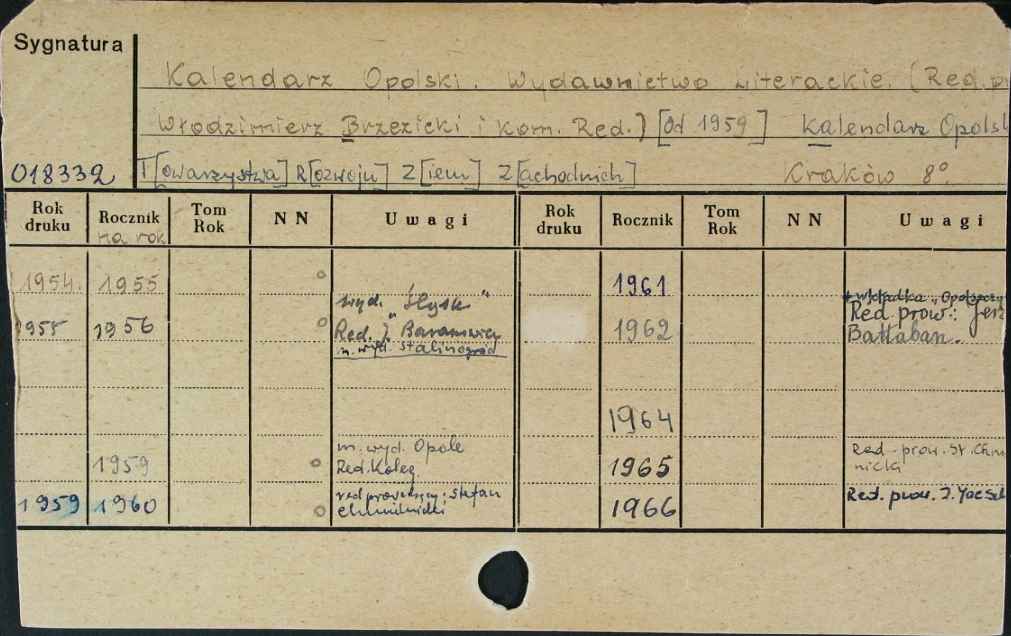 Sygnatura
Kalendarz Opolski. Wydawnictwo Literackie. (Red. pr
Włodzimierz Brzezicki i kom. Red.) [Od 1959] Kalendarz Opolsk
018332 T[owarzystwa] R[ozwoju] Z[iem] Z[achodnich] Kraków 8°.
Rok druku Rocznik na rok Tom Rok NN Uwagi Rok druku Rocznik Tom Rok NN Uwagi
1954. 1955 1961
wyd. "Śląsk" + wkładka "Opolszczy
1955 1956 Red. J. Baranowicz 1962 Red. prow.: Jer
m. wyd. Stalinogród Bałłaban.
1964
m. wyd. Opole Red. prow. St. Chm
1959 Red. Koleg 1965 nicki
1959 1960 red prowadzący: Stefan 1966 Red. prow. J.
Chmielnicki